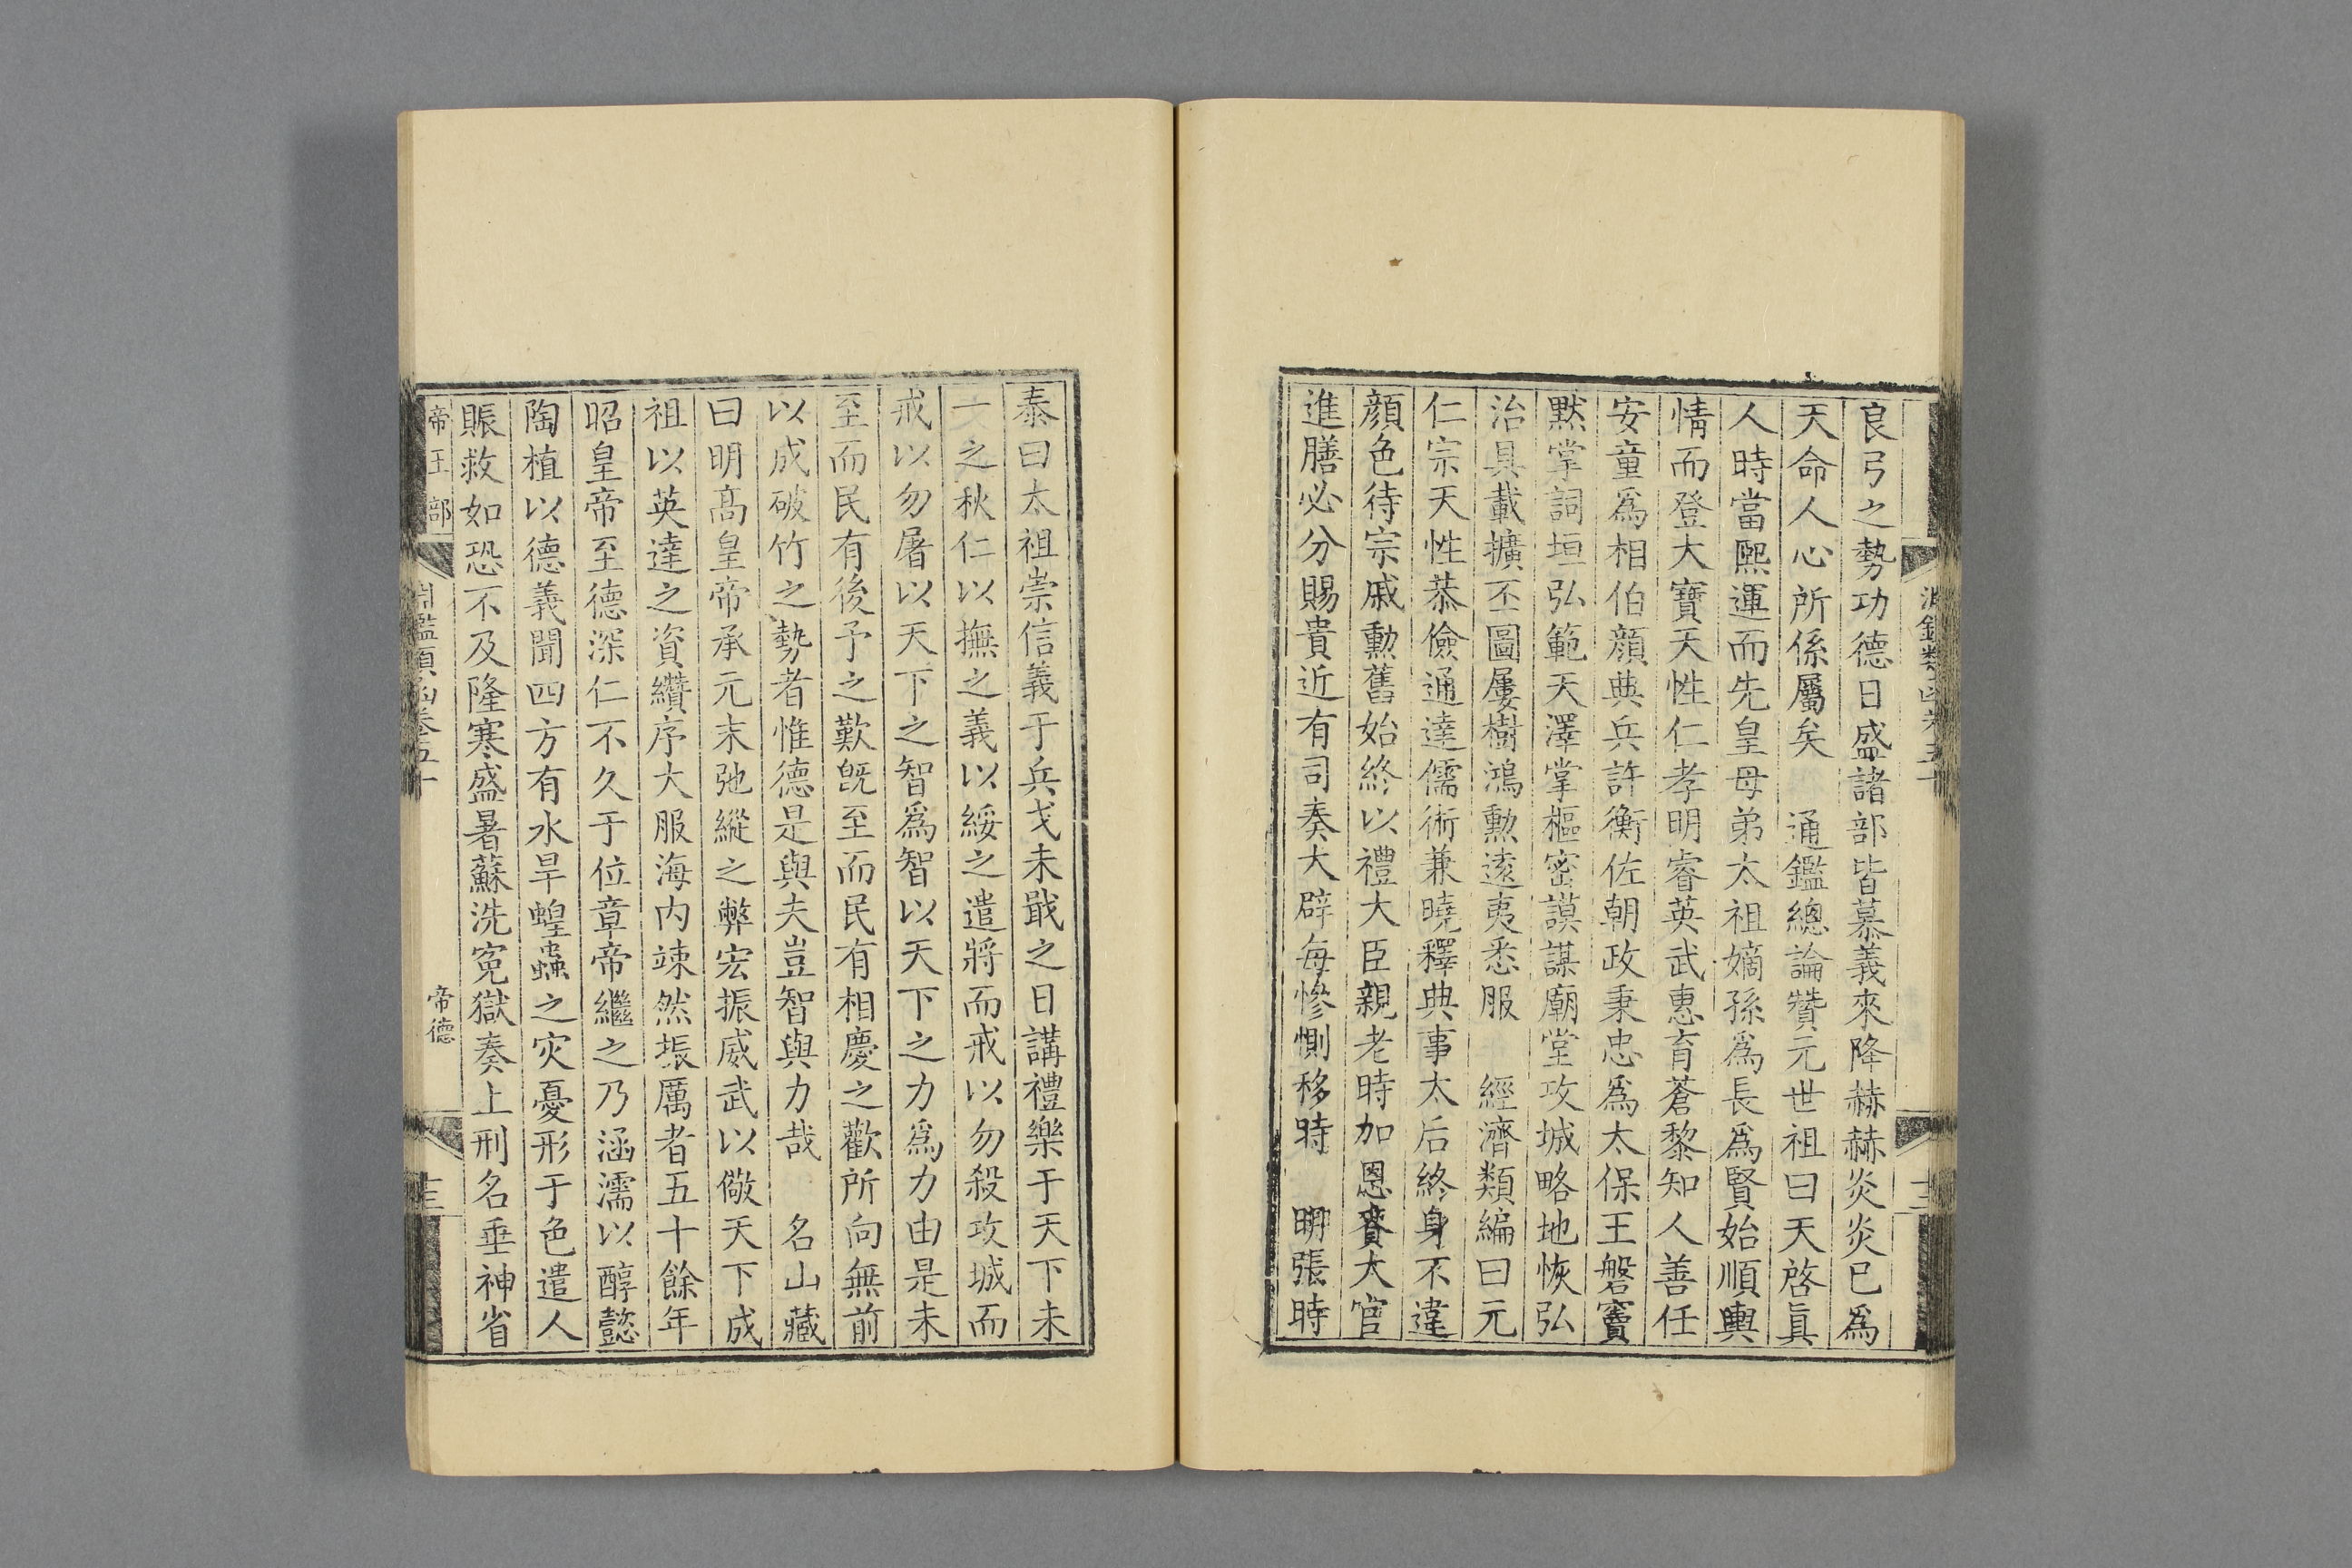 良弓之勢功德日盛諸部皆慕義來降赫赫炎炎已爲
天命人心所係屬矣 通鑑總論贊元世祖曰天啓眞
人時當熙運而先皇母弟太祖嫡孫爲長爲賢始順輿
情而登大寶天性仁孝明睿英武惠育蒼黎知人善任
安童爲相伯顔典兵許衡佐朝政秉忠爲太保王磐竇
默掌詞垣弘範天澤掌樞密謨謀廟堂攻城略地恢弘
治具載擴丕圖屢樹鴻勲逺夷悉服 經濟類編曰元
仁宗天性恭儉通達儒術兼曉釋典事太后終身不違
顔色待宗戚勲舊始終以禮大臣親老時加恩賚大官
進膳必分賜貴近有司奏大辟每慘惻移時 明張時
泰曰太祖崇信義于兵戈未戢之日講禮樂于天下未
一之秋仁以撫之義以綏之遣將而戒以勿殺攻城而
戒以勿屠以天下之智爲智以天下之力爲力由是未
至而民有後予之歎旣至而民有相慶之歡所向無前
以成破竹之勢者惟德是與夫豈智與力哉 名山藏
曰明髙皇帝承元末弛縱之弊宏振威武以儆天下成
祖以英達之資纘序大服海内竦然振厲者五十餘年
昭皇帝至德深仁不久于位章帝繼之乃涵濡以醇懿
陶植以德義聞四方有水旱蝗蟲之灾憂形于色遣人
賑救如恐不及隆寒盛暑蘇洗寃獄奏上刑名垂神省
帝王部
淵鑑類函卷五十
帝德